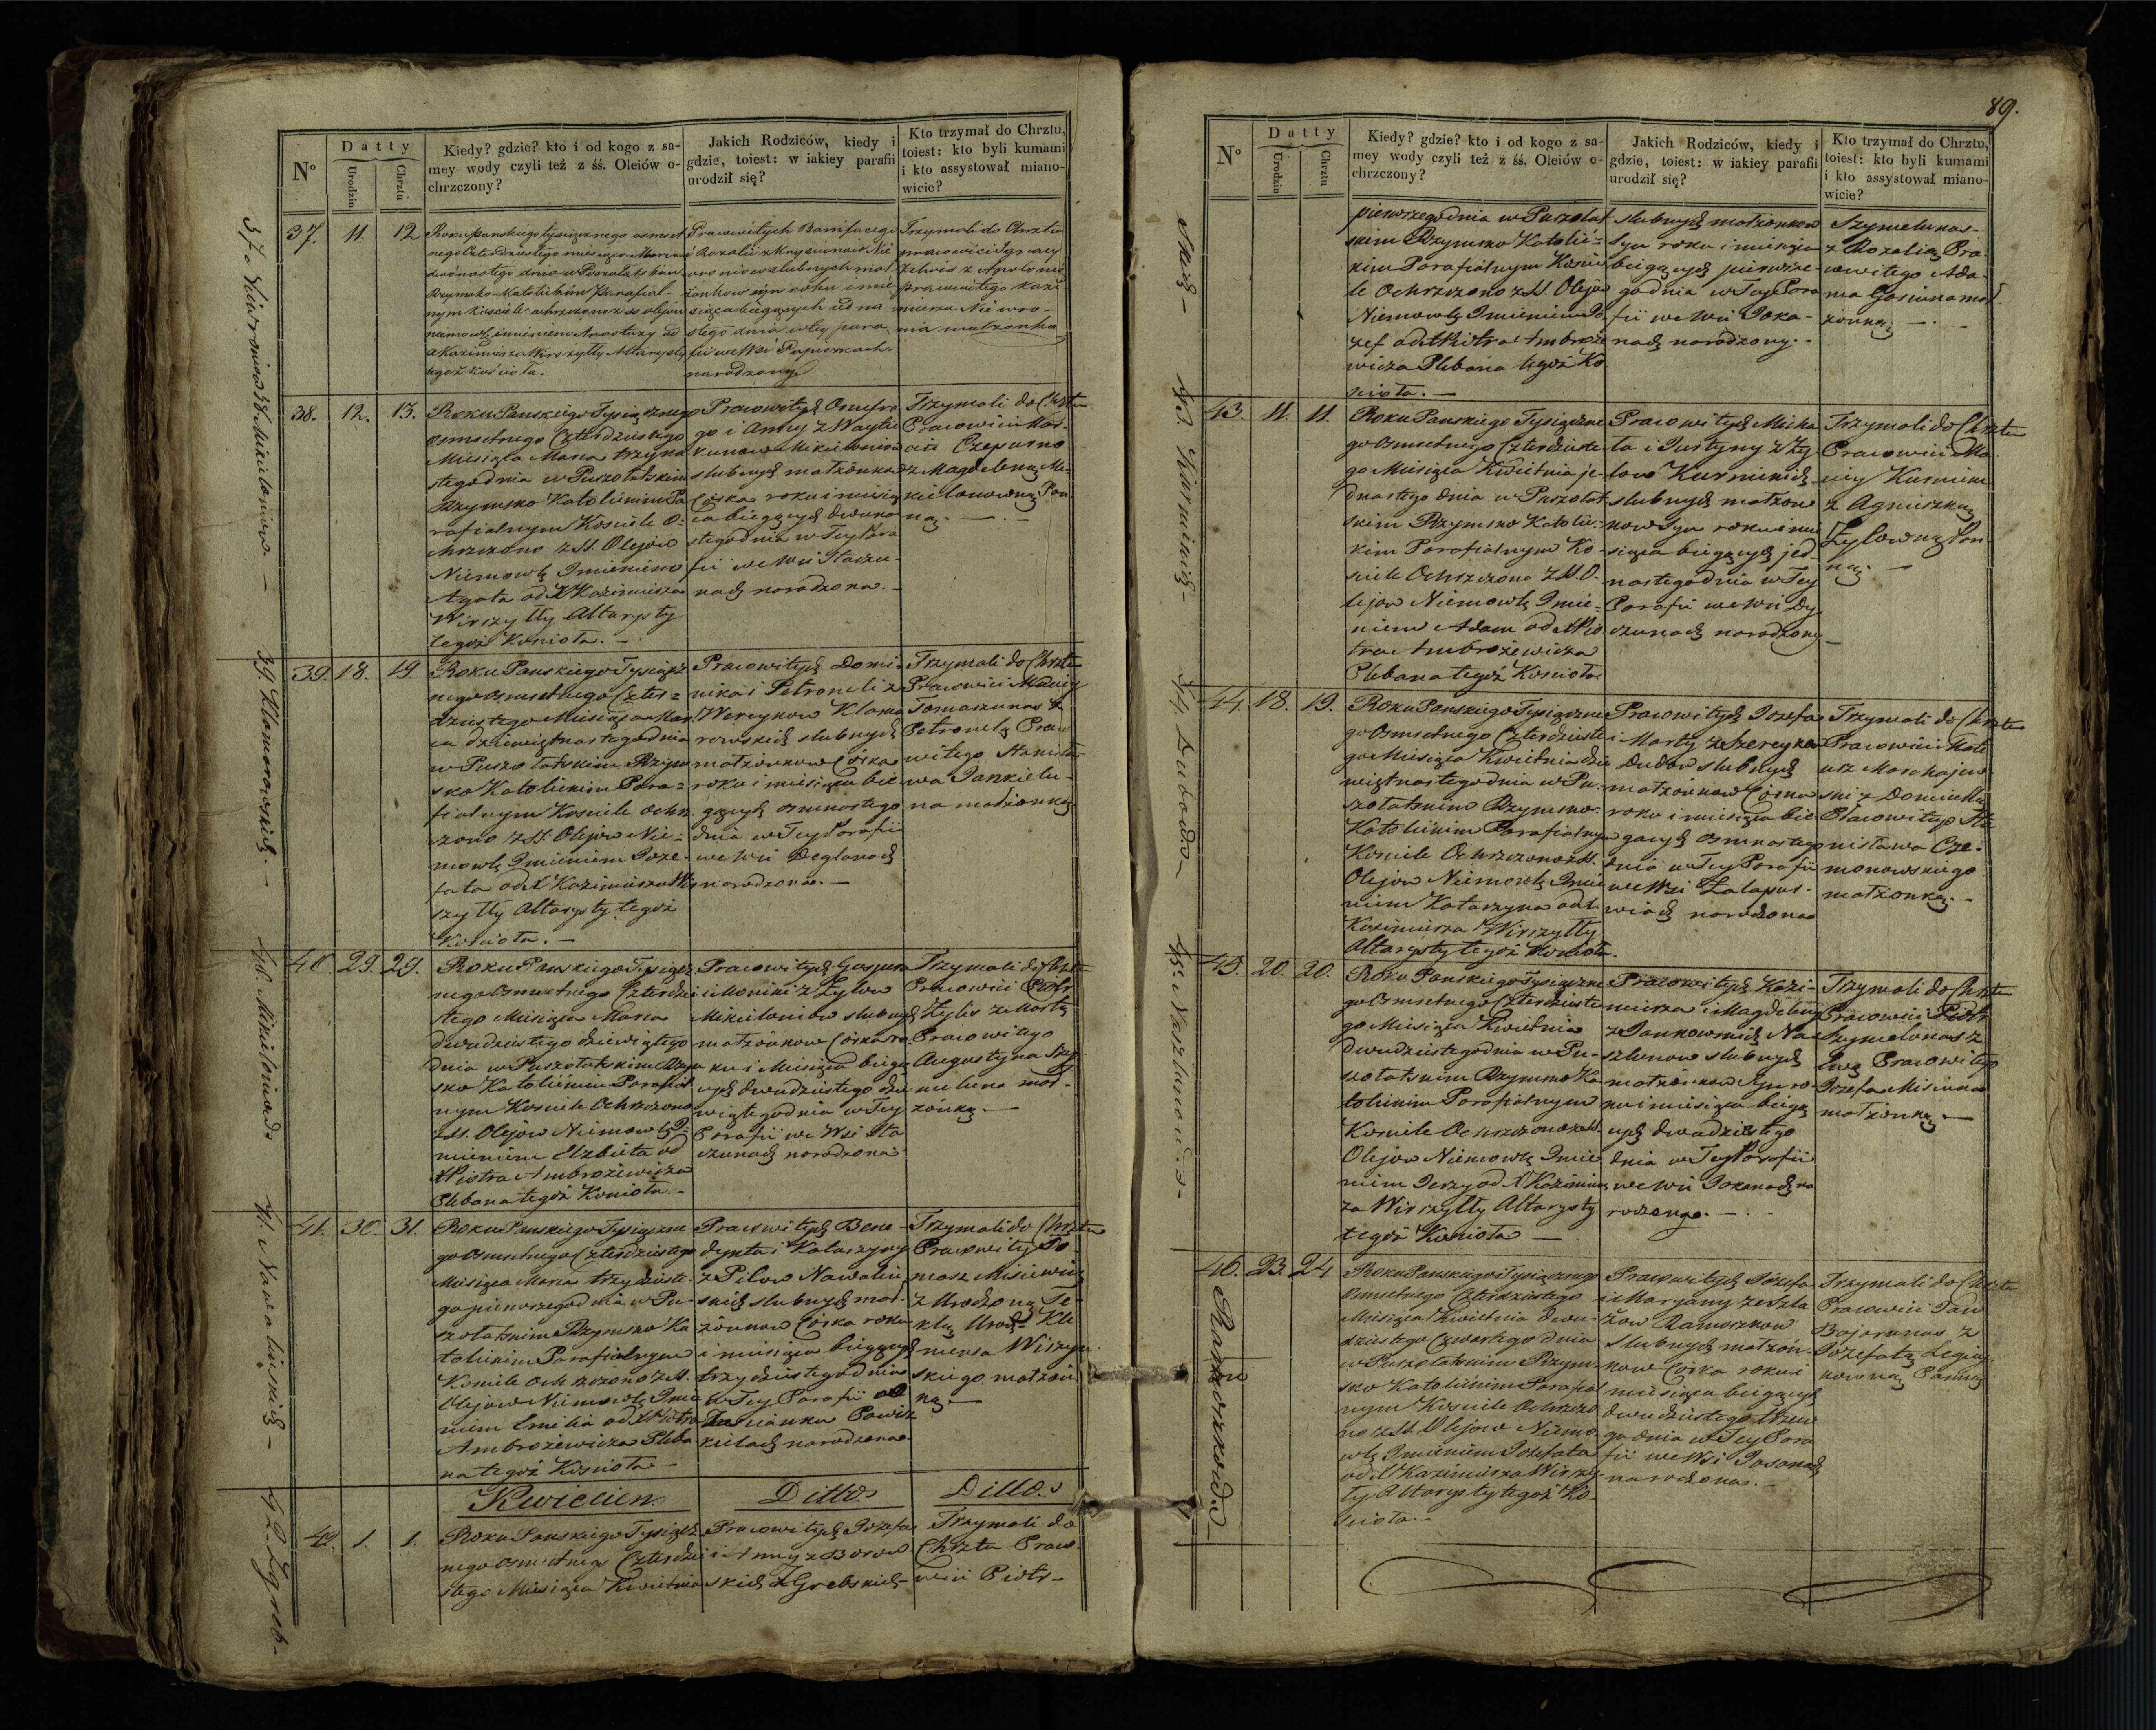 89.
Nº
Datty
Urodzin
Chrztu
Kiedy? gdzie? kto i od kogo z sa-
mey wody czyli też z śś. Oleiów o-
chrzczony?
Jakich Rodziców, kiedy i
gdzie, toiest: w iakiey parafii
urodził się?
Kto trzymał do Chrztu,
toiest: kto byli kumami
i kto assystował miano-
wicie?
37.
11.
12
Roku panskiego tysiącznego osmset
nego Czterdziestego miesiąca Marca
dwónastego dnia w Poszołatskim
Rzymsko-Katolickim Parafial-
nym Kościele ochrzczono z ss olejów
imieniem Anastazy od
X Kazimierza Wirszyłły Altarysty
tegoż kościoła.
Prawowitych Bonifacego
i Rozalii
ślubnych mał
żonkow syn roku i mie
siąca bieżących iedna
stego dnia w tey para
fii we Wsi
narodzony
Trzymali do Chrztu
pracowici Ignacy
z Apolonią
pracowitego Kazi
mierza
małżonką
38.
12.
13.
Roku Panskiego Tysiącznego
osmsetnego Czterdziestego
Miesiąca Marca trzyna
stego dnia w Puszołatskim
Rzymsko Katolickim Pa
rafialnym Kosciele o-
chrzczono z SS. Olejow
Niemowlę Imieniem
Agata od X Kazimierza
Wirszyłły Altarysty
tegoż Koscioła. –
Pracowitych Onufre
go i Anny z Woytie
kunow Mikielonisow
slubnych małżonkow
Corka roku i miesią
ca bieżących dwuna
stego dnia w Tey Para
fii we Wsi Staczu-
nach narodzona. –
Trzymali do Chrztu
Pracowici Mar-
cin Czepurno
z Magdaleną Mi-
kielonowną Pan
ną. –
39.
18.
19
Roku Panskiego Tysiącz
nego osmsetnego Czter=
dziestego Miesiąca Mar
ca dziewiętnastego dnia
w Puszołatskim Rzym
sko Katolickim Para=
fialnym Kosciele ochrz
czono z SS. Olejow Nie=
mowlę Imieniem Joze-
fata od X Kazimierza Wir
szyłły Altarysty tegoż
Koscioła. –
Pracowitych Domi-
nika i Petroneli z
Wereykow Klama
rowskich slubnych
małżonkow Corka
roku i miesiąca bie
gących osmnastego
dnia w Tey Parafii
we Wsi Deglanach
narodzona. –
Trzymali do Chrztu
Pracowici Maciey
Tomaszunas z
Petronelą Praco
witego Stanisła
wa Jankielu-
na małżonką
40
29.
29.
Roku Panskiego Tysiącz
nego Osmsetnego Czterdzie
stego Miesiąca Marca
dwudziestego dziewiątego
dnia w Puszołatskim Rzym
sko Katolickim Parafial
nym Kosciele Ochrzczono
z SS. Olejow Niemowlę I-
mieniem Elzbieta od
X Piotra Ambrożewicza
Plebana tegoż Koscioła. –
Pracowitych Gaspera
i Moniki z Zylow
Mikielonisow slubnych
małżonkow Corka ro
ku i Miesiąca bieżą
cych dwudziestego dzie
wiątego dnia w Tey
Parafii we Wsi Sta
czunach narodzona.
Trzymali do Chrztu
Pracowici Piotr
Zylis z Martą
Pracowitego
Augustyna Szy
meluna mał-
żonką. –
41.
30.
31.
Roku Panskiego Tysiączne
go Osmsetnego Czterdziestego
Miesiąca Marca trzydzieste-
go pierwszego dnia w Pu-
szołatskim Rzymsko Ka
tolickim Parafialnym
Kosciele ochrzczono z SS.
Olejow Niemowlę Imie
niem Emilia od X Piotra
Ambrożewicza Pleba
na tegoż Koscioła –
Pracowitych Bene-
dykta i Katarzyny
z Pilow Nawalin
skich slubnych mał-
żonkow Corka roku
i miesiąca bieżących
trzydziestego dnia
w Tey Parafii
narodzona.
Trzymali do Chrztu
Pracowity To-
masz Misiewicz
z Urodzoną Te-
klą Urodz. Kle
mensa Wirszyn
skiego małżon
ką. –
Kwiecien
Ditto
Ditto
42.
1.
1.
Roku Panskiego Tysiącz
nego Osmsetnego Czterdzie
stego Miesiąca Kwietnia
Pracowitych Jozefa
i Anny z Borow
skich Zgrebskich
Trzymali do
Chrztu Praco-
wici Piotr-
39. Klamarowskich. –
41. Nawalinskich –
42. Zgreb-
Nº
Datty
Urodzin
Chrztu
Kiedy? gdzie? kto i od kogo z sa-
mey wody czyli też z śś. Oleiów o-
chrzczony?
Jakich Rodziców, kiedy i
gdzie, toiest: w iakiey parafii
urodził się?
Kto trzymał do Chrztu,
toiest: kto byli kumami
i kto assystował miano-
wicie?
pierwszego dnia w Puszołat
skim Rzymsko Katolic=
kim Parafialnym Koscie
le Ochrzczono z SS. Olejow
Niemowlę Imieniem Jo
zef od X Piotra Ambroże
wicza Plebana tegoż Ko
scioła. –
slubnych małżonkow
Syn roku i miesiąca
bieżących pierwsze-
go dnia w Tey Para
fii we Wsi Joka-
nach narodzony. –
Szymelunas-
z Rozalią Pra-
cowitego Ada-
ma Gasiuna mał
żonką. –
43.
11.
11.
Roku Panskiego Tysiączne
go Osmsetnego Czterdzieste
go Miesiąca Kwietnia je-
dnastego dnia w Puszołat
skim Rzymsko Katolic-
kim Parafialnym Ko-
sciele Ochrzczono z SS. O-
lejow Niemowlę Imie-
niem Adam od X Pio
tra Ambrożewicza
Plebana tegoż Koscioła
Pracowitych Micha
ła i Justyny z Zy
low Kurminich
slubnych małżon
kow Syn roku i mie
siąca bieżących jed-
nastego dnia w Tey
Parafii we Wsi Dy
czunach narodzony –
Trzymali do Chrztu
Pracowici Ma-
ciey Kurmin
z Agnieszką
Zylowną Pan-
ną. –
44.
18.
19.
Roku Panskiego Tysiączne
go Osmsetnego Czterdzieste
go Miesiąca Kwietnia dzie
więtnastego dnia w Pu-
szołatskim Rzymsko-
Katolickim Parafialnym
Kosciele Ochrzczono z SS.
Olejow Niemowlę Imie
niem Katarzyna od X.
Kazimierza Wirszyłły
Altarysty tegoż Koscioła.
Pracowitych Jozefa
i Marty z Szereykow
Dudow slubnych
małżonkow Corka
roku i miesiąca bie
gących osmnastego
dnia w Tey Parafii
we Wsi
narodzona
Trzymali do Chrztu
Pracowici Mate
usz Marchajew
ski z Dominiką
Pracowitego Sta
nisława Cze-
monowskiego
małżonką. –
45.
20.
20.
Roku Panskiego Tysiączne
go Osmsetnego Czterdzieste
go Miesiąca Kwietnia
dwudziestego dnia w Pu-
szołatskim Rzymsko Ka
tolickim Parafialnym
Kosciele Ochrzczono z SS.
Olejow Niemowlę Imie
niem Jerzy od X Kazimier
za Wirszyłły Altarysty
tegoż Koscioła –
Pracowitych Kazi-
mierza i Magdaleny
z Jankowskich Na
szlunow slubnych
małżonkow Syn ro-
ku i miesiąca bieżą
cych dwadziestego
dnia w Tey Parafii
we Wsi Jokanach na
rodzony. –
Trzymali do Chrztu
Pracowici Piotr
Szymelunas z
Ewą Pracowitego
Jozefa Misiuna
małżonką. –
46.
23.
24
Roku Panskiego Tysiącznego
Osmsetnego Czterdziestego
Miesiąca Kwietnia dwu-
dziestego Czwartego dnia
w Puszołatskim Rzym
sko Katolickim Parafial
nym Kosciele Ochrzczo
no z SS. Olejow Niemo
wlę Imieniem Jozefata
od X Kazimierza Wirszy
łły Altarysty tegoż Ko-
scioła. –
Pracowitych Jozefa
i Maryany ze Szla
żow Ramoszkow
slubnych małżon-
kow Corka roku i
miesiąca bieżących
dwudziestego trzecie
go dnia w Tey Para
fii we Wsi
narodzona. –
Trzymali do Chrztu
Pracowici Jan
Bojarunas z
Jozefatą
Panną
skich –
43. Kurminich –
44. Dudow –
46. Ramoszkow –